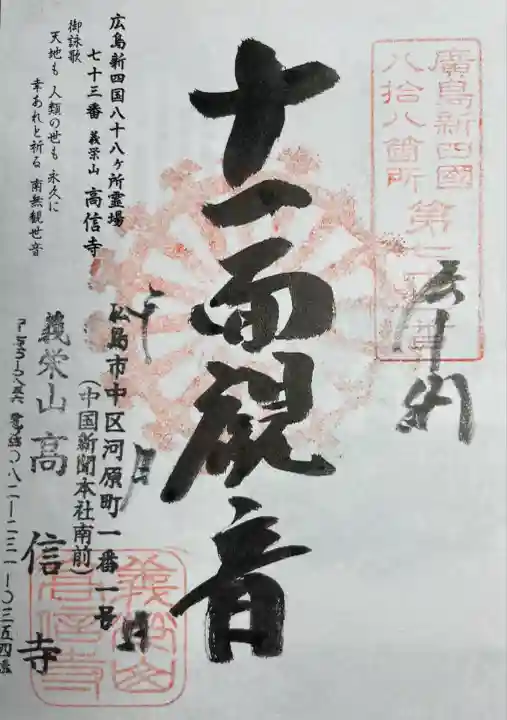 廣島新四國
八拾八箇所
奉拝
十一面観音
広島新四国八十八ヶ所霊場
七十三番 義栄山 高信寺
御詠歌
天地も 人類の世も 永久に
幸あれと祈る 南無観世音
広島市中区河原町一番一号
(中国新聞本社南前)
義栄山 高信寺
〇八二-二三一-〇三五四